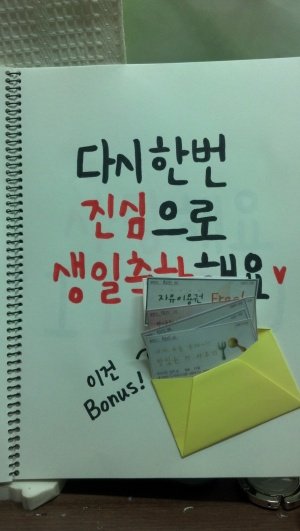 다시한번
진심으로
생일축하해요♥
자유이용권 Free!
이건
Bonus!